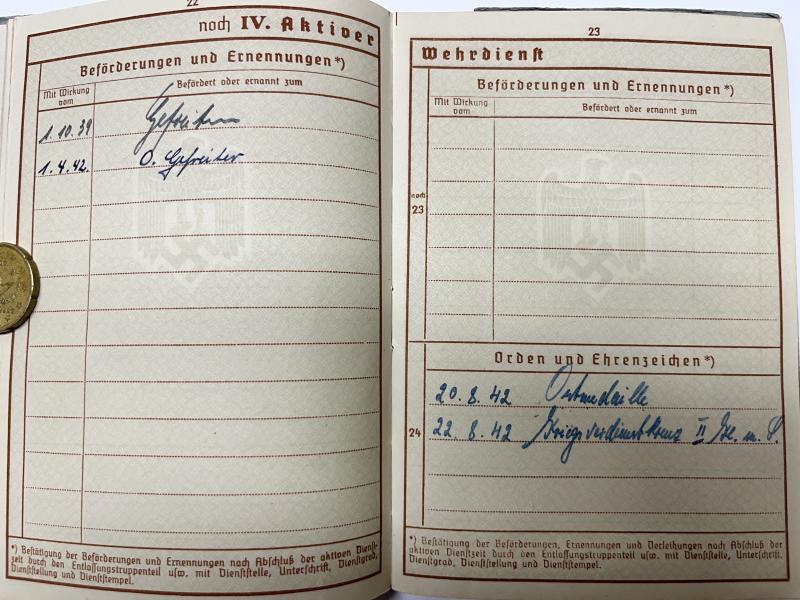 22
noch IV. Aktiver
Beförderungen und Ernennungen*)
Mit Wirkung vom
Befördert oder ernannt zum
1.10.39 Gefreiten
1.4.42. O. Gefreiter
*) Bestätigung der Beförderungen und Ernennungen nach Abschluß der aktiven Dienst-
zeit durch den Entlassungstruppenteil usw. mit Dienststelle, Unterschrift, Dienstgrad,
Dienststellung und Dienststempel.
23
Wehrdienst
Beförderungen und Ernennungen*)
Mit Wirkung vom
Befördert oder ernannt zum
noch
23
Orden und Ehrenzeichen*)
20.8.42 Ostmedaille
24
22.8.42 Kriegsverdienstkreuz II Kl. m. S.
*) Bestätigung der Beförderungen, Ernennungen und Verleihungen nach Abschluß der
aktiven Dienstzeit durch den Entlassungstruppenteil usw. mit Dienststelle, Unterschrift,
Dienstgrad, Dienststellung und Dienststempel.